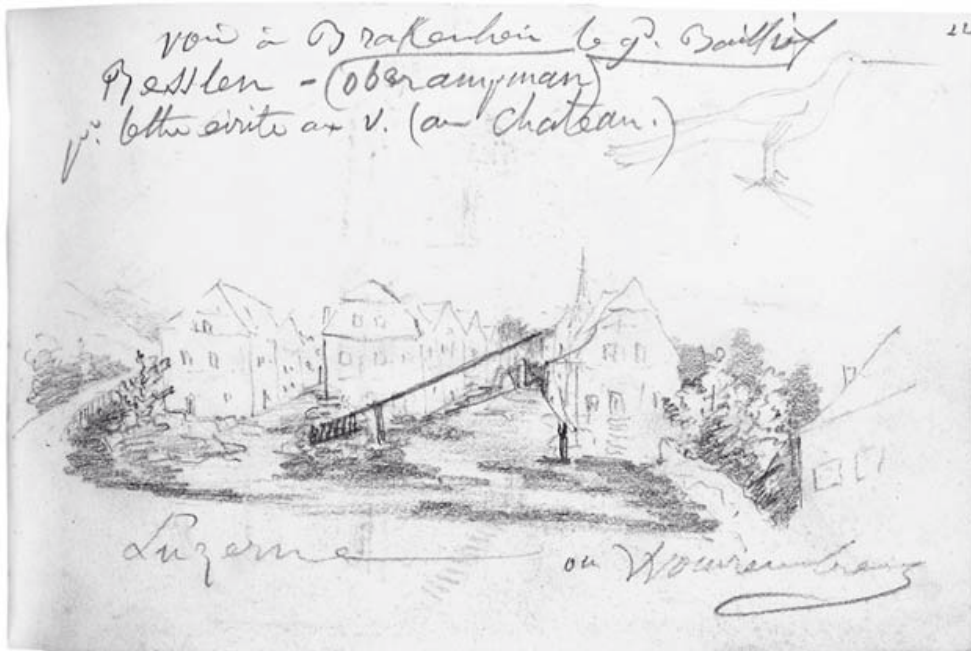 voir à Brakenheim le gd. Bailli
Resslen - (oberampman)
pr. lettre écrite au V. (au chateau.)
22
Luzerne ou Nouremberg